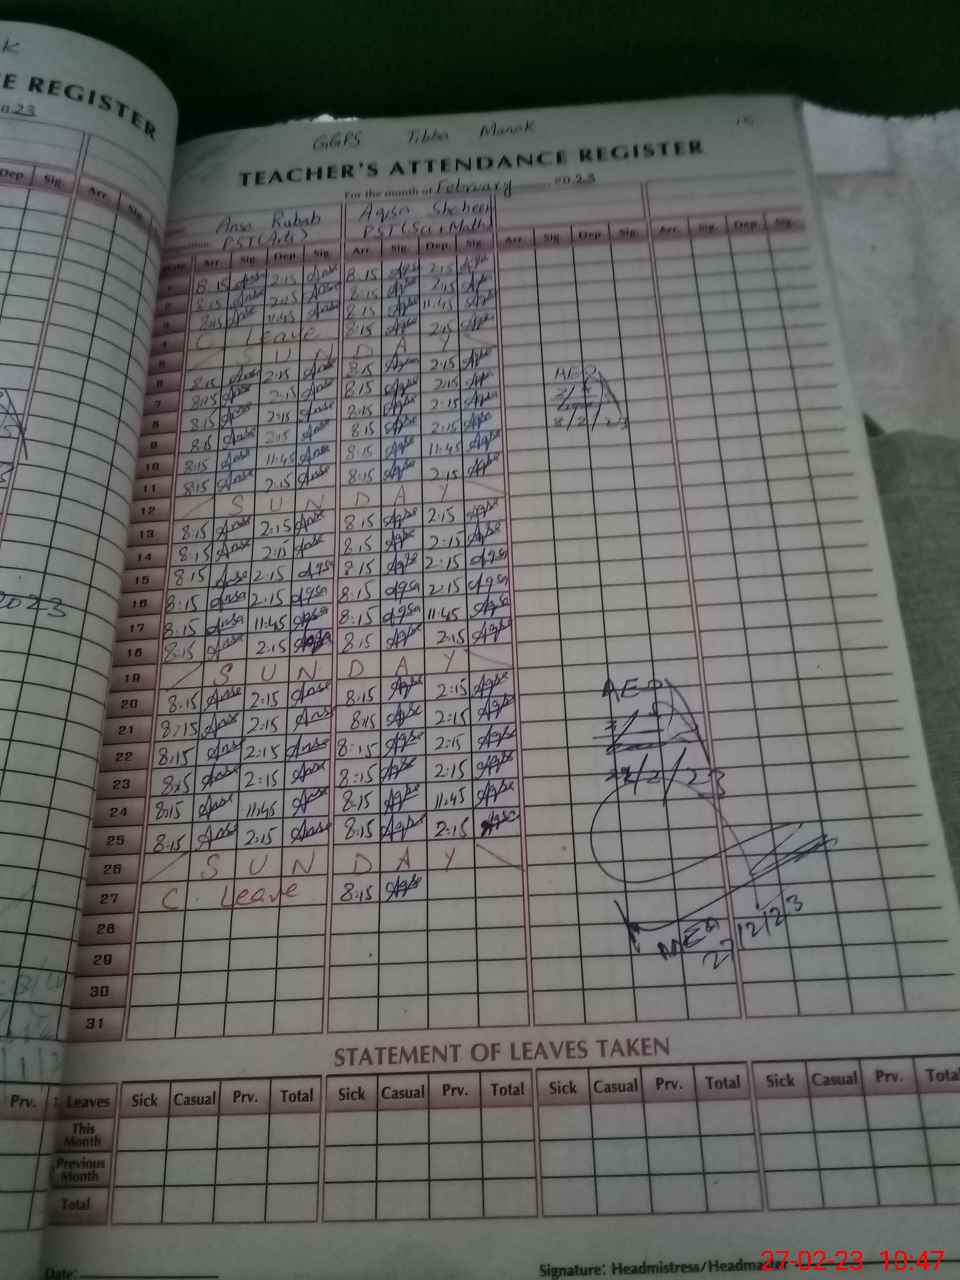 K
E REGISTER
023
Dep. Sig. Arr. Sig.
GGPS Tibba Manak
TEACHER'S ATTENDANCE REGISTER
For the month of February 2023
Ansa Rubab Aqsa Shaheen
PST(Arts) PST(Sci+Math)
Arr. Sig. Dep. Sig. Arr. Sig. Dep. Sig. Arr. Sig. Dep. Sig. Arr. Sig. Dep. Sig.
1 8:15 2:15 8:15 2:15
2 8:15 2:15 8:15 2:15
3 8:15 11:45 8:15 11:45
4 C. Leave 8:15 2:15
5 S U N D A Y
6 8:15 2:15 8:15 2:15
7 8:15 2:15 8:15 2:15
8 8:15 2:15 8:15 2:15
9 8:15 2:15 8:15 2:15
10 8:15 11:45 8:15 11:45
11 8:15 2:15 8:15 2:15
12 S U N D A Y
13 8:15 Ansa 2:15 Ansa 8:15 Aqsa 2:15 Aqsa
14 8:15 Ansa 2:15 Ansa 8:15 Aqsa 2:15 Aqsa
15 8:15 Ansa 2:15 Aqsa 8:15 Aqsa 2:15 Aqsa
16 8:15 Ansa 2:15 Aqsa 8:15 Aqsa 2:15 Aqsa
17 8:15 Ansa 11:45 Aqsa 8:15 Aqsa 11:45 Aqsa
18 8:15 Ansa 2:15 8:15 Aqsa 2:15 Aqsa
19 S U N D A Y
20 8:15 Ansa 2:15 Ansa 8:15 Aqsa 2:15 Aqsa
21 8:15 Ansa 2:15 Ansa 8:15 Aqsa 2:15 Aqsa
22 8:15 Ansa 2:15 Ansa 8:15 Aqsa 2:15 Aqsa
23 8:15 Ansa 2:15 Ansa 8:15 Aqsa 2:15 Aqsa
24 8:15 Ansa 11:45 Ansa 8:15 Aqsa 11:45 Aqsa
25 8:15 Ansa 2:15 Ansa 8:15 Aqsa 2:15 Aqsa
26 S U N D A Y
27 C. Leave 8:15 Aqsa
28
29
30
31
AEO
8/2/23
AEO
/2/23
MEA
27/2/23
2023
STATEMENT OF LEAVES TAKEN
Prv. Leaves Sick Casual Prv. Total Sick Casual Prv. Total Sick Casual Prv. Total Sick Casual Prv. Total
This Month
Previous Month
Total
Date:
Signature: Headmistress/Headmaster
27-02-23 10:47